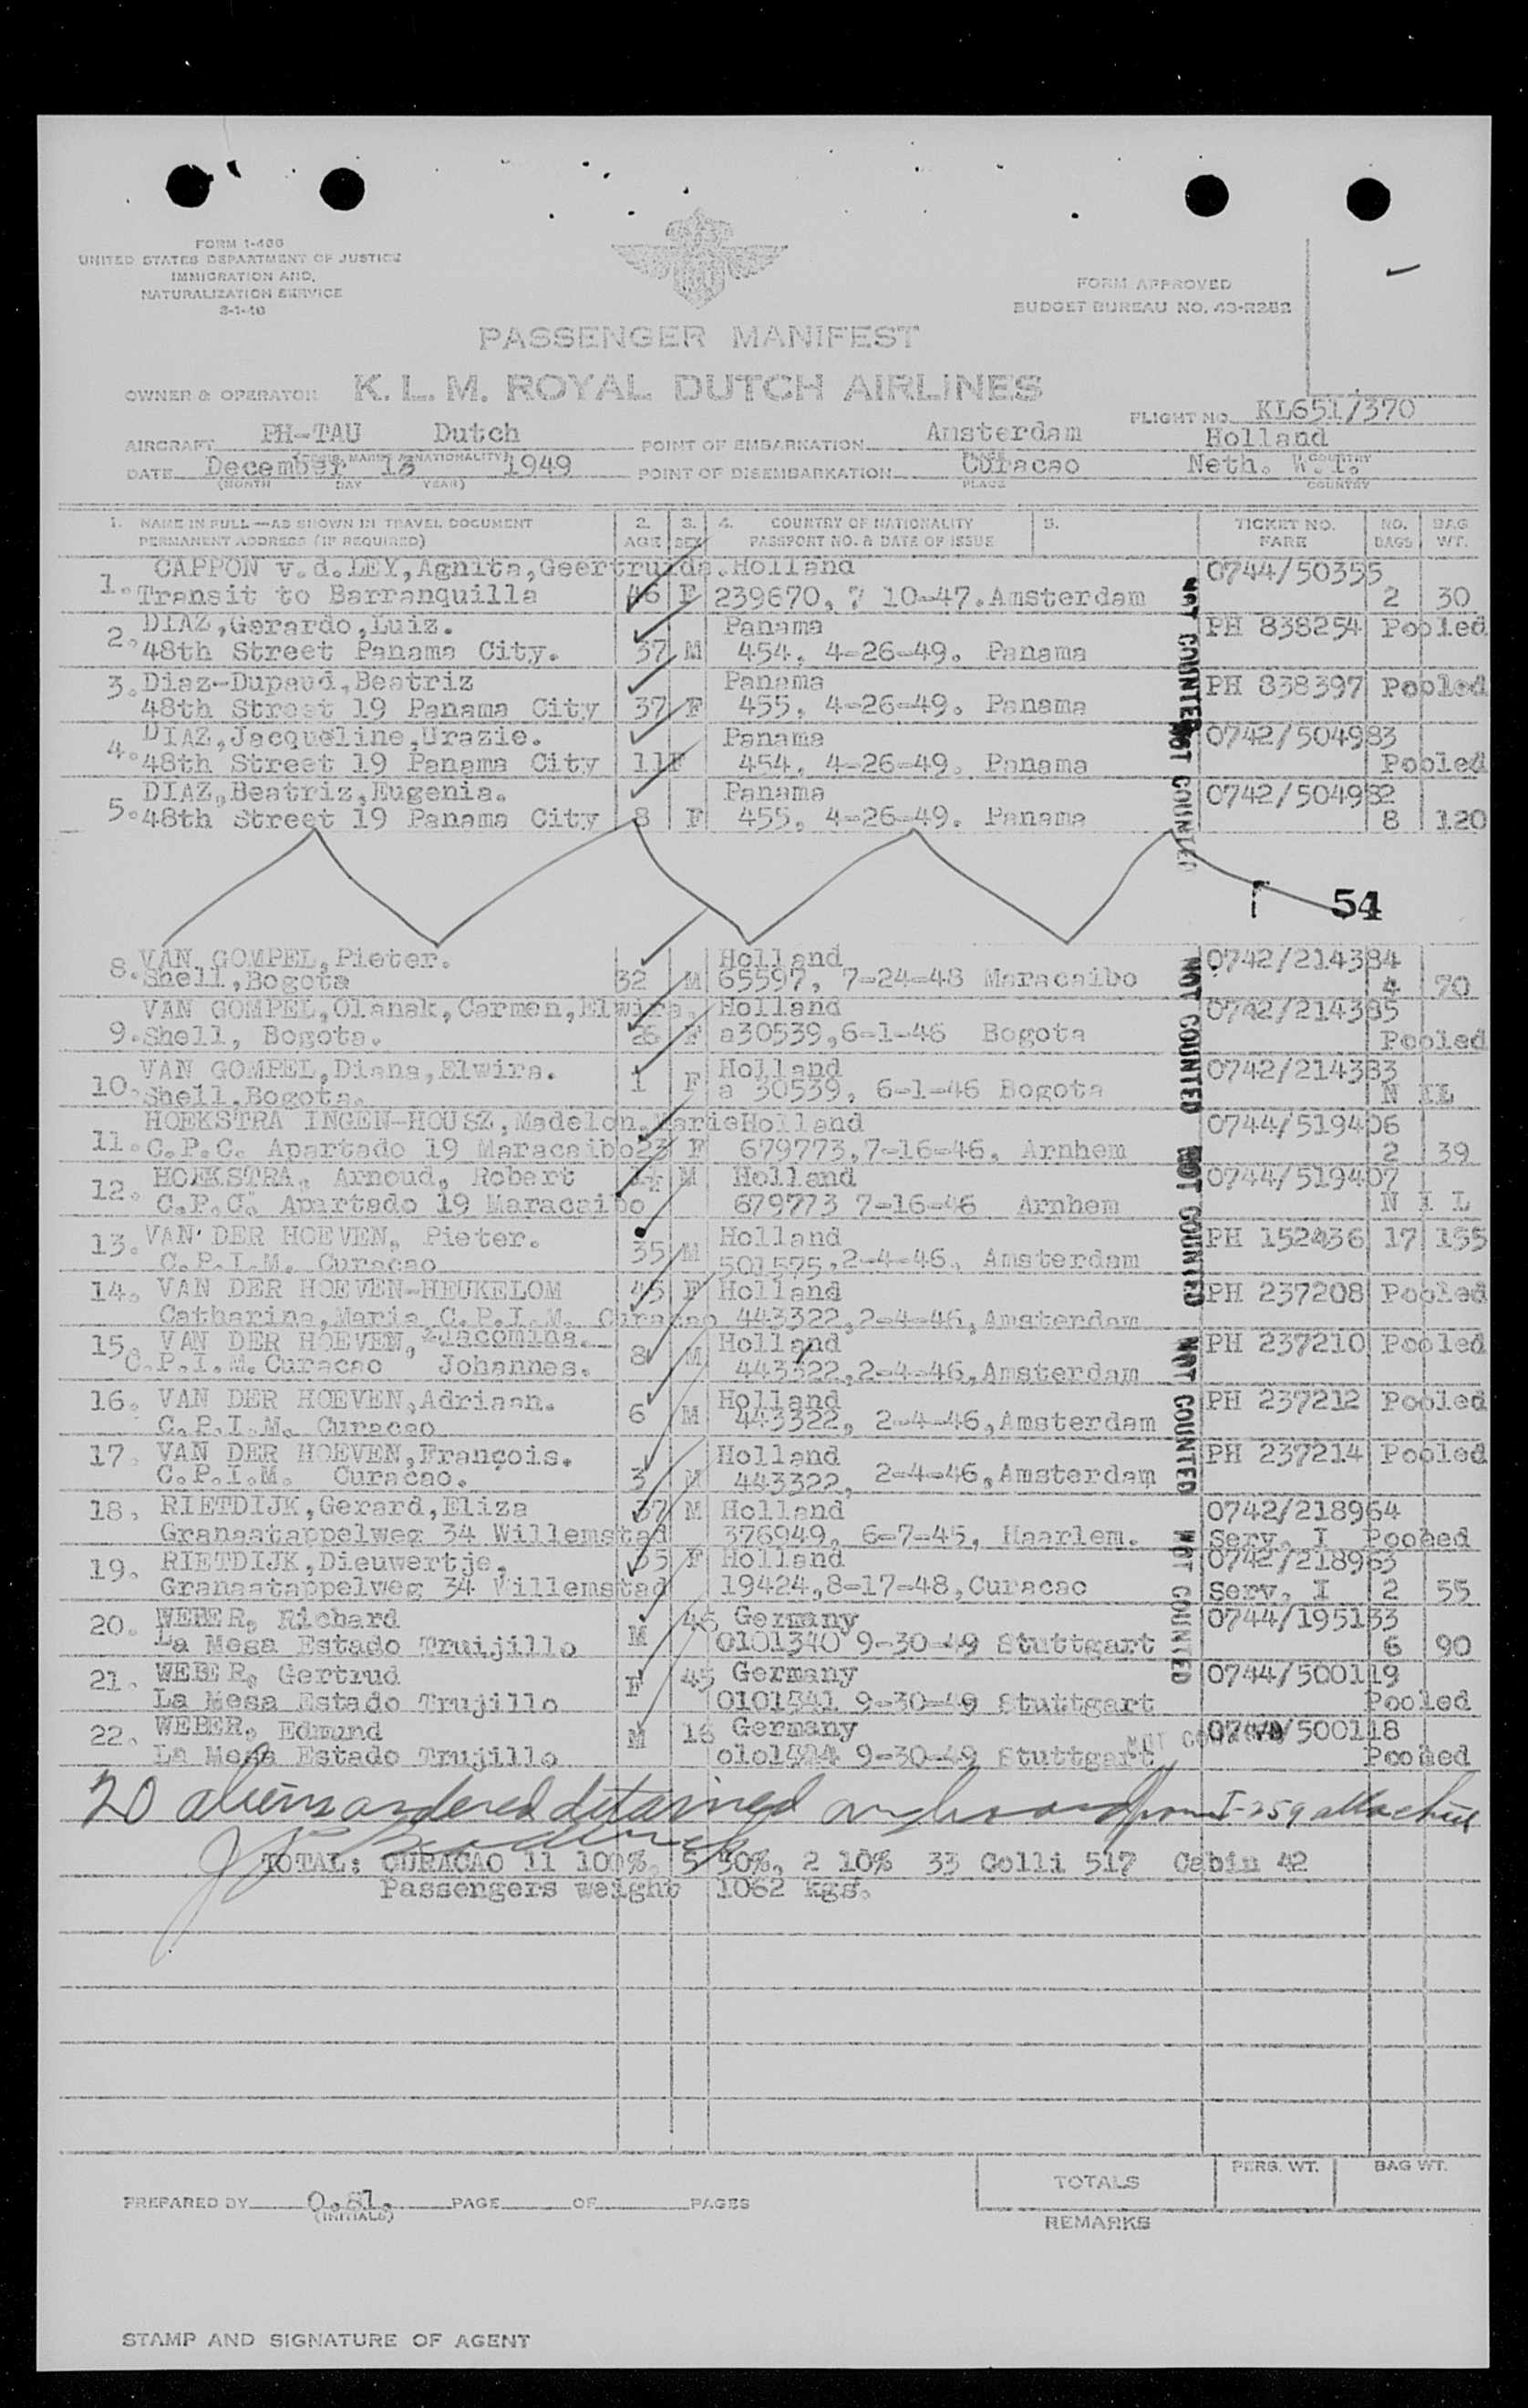 FORM I-466
UNITED STATES DEPARTMENT OF JUSTICE
IMMIGRATION AND,
NATURALIZATION SERVICE
FORM APPROVED
BUDGET BUREAU NO. 43-R282
PASSENGER MANIFEST
OWNER & OPERATOR K. L. M. ROYAL DUTCH AIRLINES
FLIGHT NO. KL651/370
AIRCRAFT PH-TAU Dutch POINT OF EMBARKATION Amsterdam Holland
DATE December 1949 POINT OF DISEMBARKATION Curacao Neth. W.I.
(MONTH DAY YEAR) PLACE COUNTRY
1. NAME IN FULL—AS SHOWN IN TRAVEL DOCUMENT 2. 3. 4. COUNTRY OF NATIONALITY 5. TICKET NO. NO. BAG
PERMANENT ADDRESS (IF REQUIRED) AGE SEX PASSPORT NO. & DATE OF ISSUE FARE BAGS WT.
1. CAPPON v.d.LEY,Agnita,Geertruida.Holland 0744/50355
Transit to Barranquilla 46 F 239670, 7 10-47.Amsterdam 2 30
2. DIAZ,Gerardo,Luiz. Panama PH 838254 Pooled
48th Street Panama City. 37 M 454, 4-26-49. Panama
3. Diaz-Dupaud,Beatriz Panama PH 838397 Pooled
48th Street 19 Panama City 37 F 455, 4-26-49. Panama
4. DIAZ,Jacqueline,Urazie. Panama 0742/504983
48th Street 19 Panama City 11F 454, 4-26-49. Panama Pooled
5. DIAZ,Beatriz,Eugenia. Panama 0742/504982
48th Street 19 Panama City 8 F 455, 4-26-49. Panama 8 120
NOT COUNTED
NOT COUNTED
54
8. VAN GOMPEL,Pieter. Holland 0742/214384
Shell,Bogota 32 M 65597, 7-24-48 Maracaibo 4 70
9. VAN GOMPEL,Olanak,Carmen,Elwira. Holland 0742/214385
Shell, Bogota. 26 F a30539,6-1-46 Bogota Pooled
10. VAN GOMPEL,Diana,Elwira. Holland 0742/214383
Shell,Bogota. 1 F a 30539, 6-1-46 Bogota N IL
11. HOEKSTRA INGEN-HOUSZ,Madelon,Marie Holland 0744/519406
C.P.C. Apartado 19 Maracaibo 23 F 679773,7-16-46, Arnhem 2 39
12. HOEKSTRA, Arnoud, Robert M Holland 0744/519407
C.P.C. Apartado 19 Maracaibo 679773 7-16-46 Arnhem N I L
13. VAN DER HOEVEN, Pieter. Holland PH 152436 17 155
C.P.I.M. Curacao 35 M 501575,2-4-46, Amsterdam
14. VAN DER HOEVEN-HEUKELOM 45 F Holland PH 237208 Pooled
Catharina,Maria C.P.I.M. Curacao 443322,2-4-46,Amsterdam
15. VAN DER HOEVEN, Jacomina. Holland PH 237210 Pooled
C.P.I.M.Curacao Johannes. 8 M 443322,2-4-46,Amsterdam
16. VAN DER HOEVEN,Adriaan. Holland PH 237212 Pooled
C.P.I.M. Curacao 6 M 443322, 2-4-46,Amsterdam
17. VAN DER HOEVEN,François. Holland PH 237214 Pooled
C.P.I.M. Curacao. 3 M 443322, 2-4-46,Amsterdam
18. RIETDIJK,Gerard,Eliza 37 M Holland 0742/218964
Granaatappelweg 34 Willemstad 376949, 6-7-45, Haarlem. Serv. I Pooled
19. RIETDIJK,Dieuwertje. 35 F Holland 0742/218963
Granaatappelweg 34 Willemstad 19424,8-17-48,Curacao Serv. I 2 55
20. WEBER, Richard M 46 Germany 0744/195133
La Mesa Estado Truijillo 0101340 9-30-49 Stuttgart 6 90
21. WEBER, Gertrud F 45 Germany 0744/500119
La Mesa Estado Trujillo 0101341 9-30-49 Stuttgart Pooled
22. WEBER, Edmund M 16 Germany 0744/500118
La Mesa Estado Trujillo 9-30-49 Stuttgart Pooled
NOT COUNTED
NOT COUNTED
NOT COUNTED
NOT COUNTED
NOT COUNTED
20 aliens ordered detained on board form I-259 attached
TOTAL: CURACAO 11 100%, 5 50%, 2 10% 33 Colli 517 Cabin 42
Passengers weight 1062 kgs.
TOTALS PERS. WT. BAG WT.
PREPARED BY PAGE OF PAGES
(INITIALS)
REMARKS
STAMP AND SIGNATURE OF AGENT